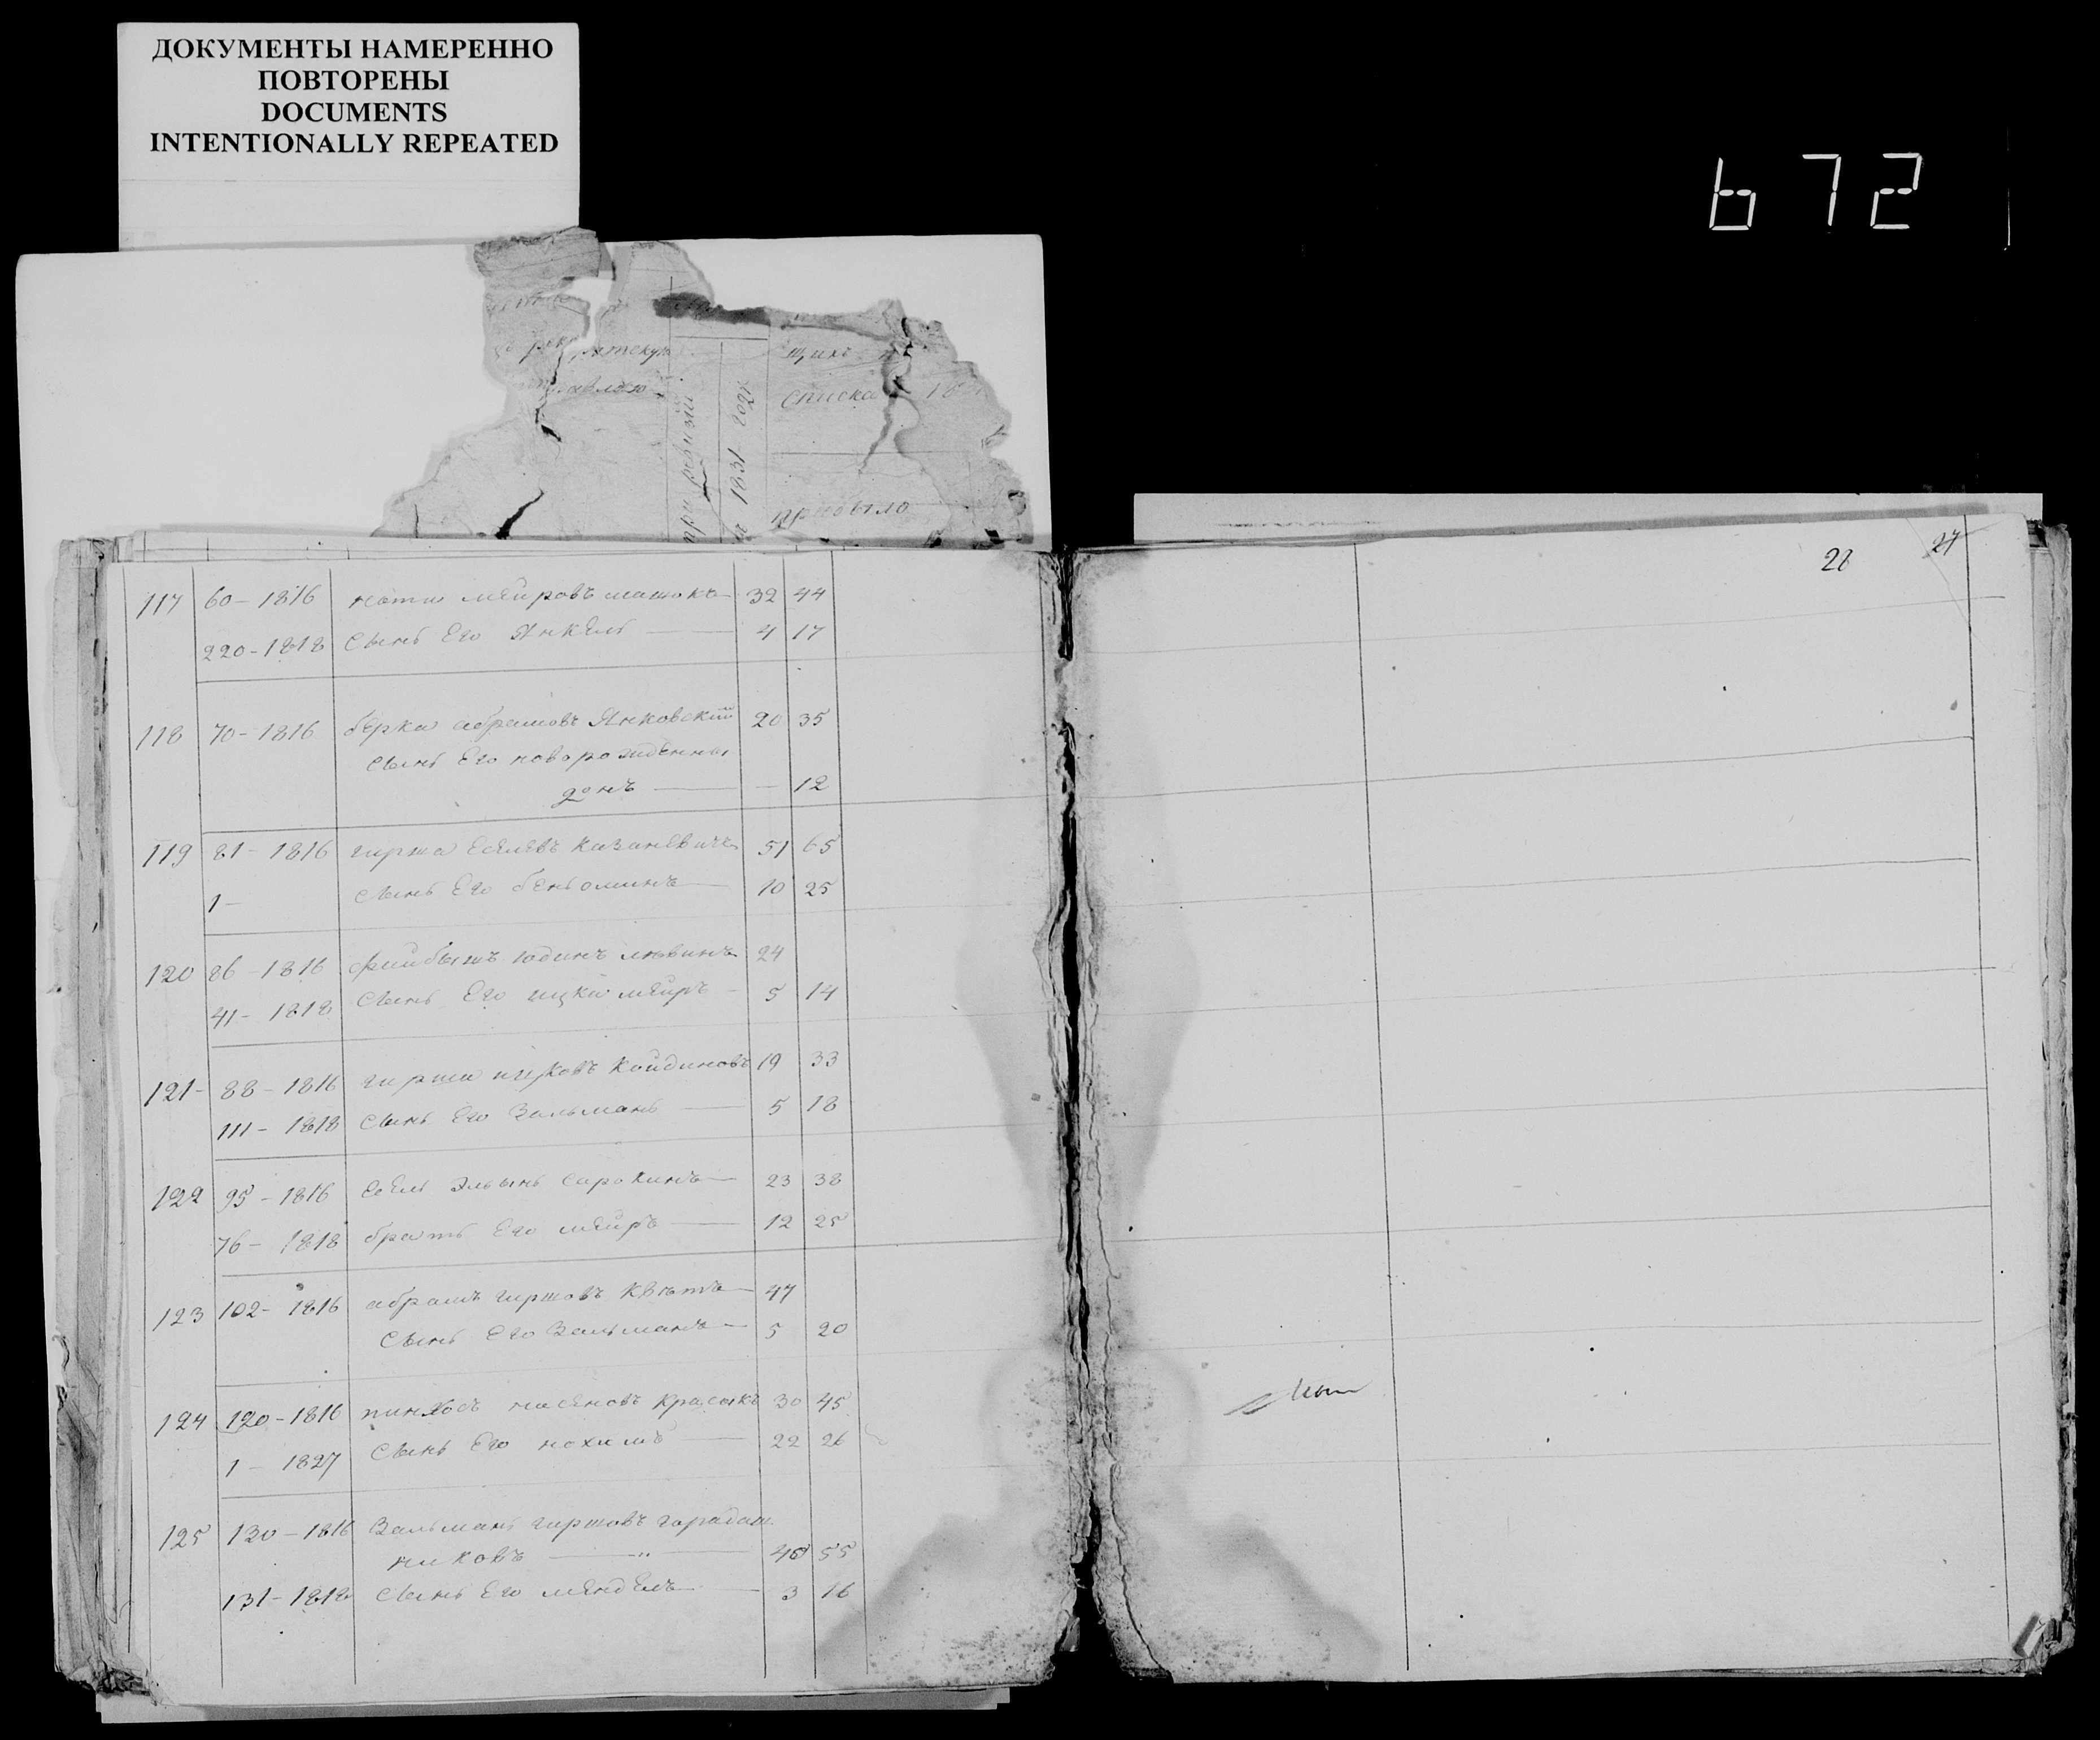 ДОКУМЕНТЫ НАМЕРЕННО
ПОВТОРЕНЫ
DOCUMENTS
INTENTIONALLY REPEATED
672
щихъ
списка
при ревизіи
1831 года
прибыло
28 27
117 60-1816 мееровъ 32 44
220-1818 сынъ его Янкель 4 17
118 70-1816 берка абрамовъ Янковскій 20 35
сынъ его новорожденны
— 12
119 81-1816 гирша еселевъ казаневичъ 51 65
1- сынъ его беньоминъ 10 25
120 86-1816 файбышъ юдинъ левинъ 24
41-1818 сынъ его ицка меиръ 5 14
121- 88-1816 гирша ицковъ койдиновъ 19 33
111-1818 сынъ его Зальманъ 5 18
122 95-1816 есель сарокинъ 23 38
76-1818 братъ его меиръ 12 25
123 102-1816 абрамъ гиршовъ 47
сынъ его Зельманъ 5 20
124 120-1816 пинхосъ красикъ 30 45
1-1827 сынъ его нохимъ 22 26
125 130-1816 Зальманъ гиршовъ
никовъ — " — 40 55
131-1818 сынъ его мендель 3 16